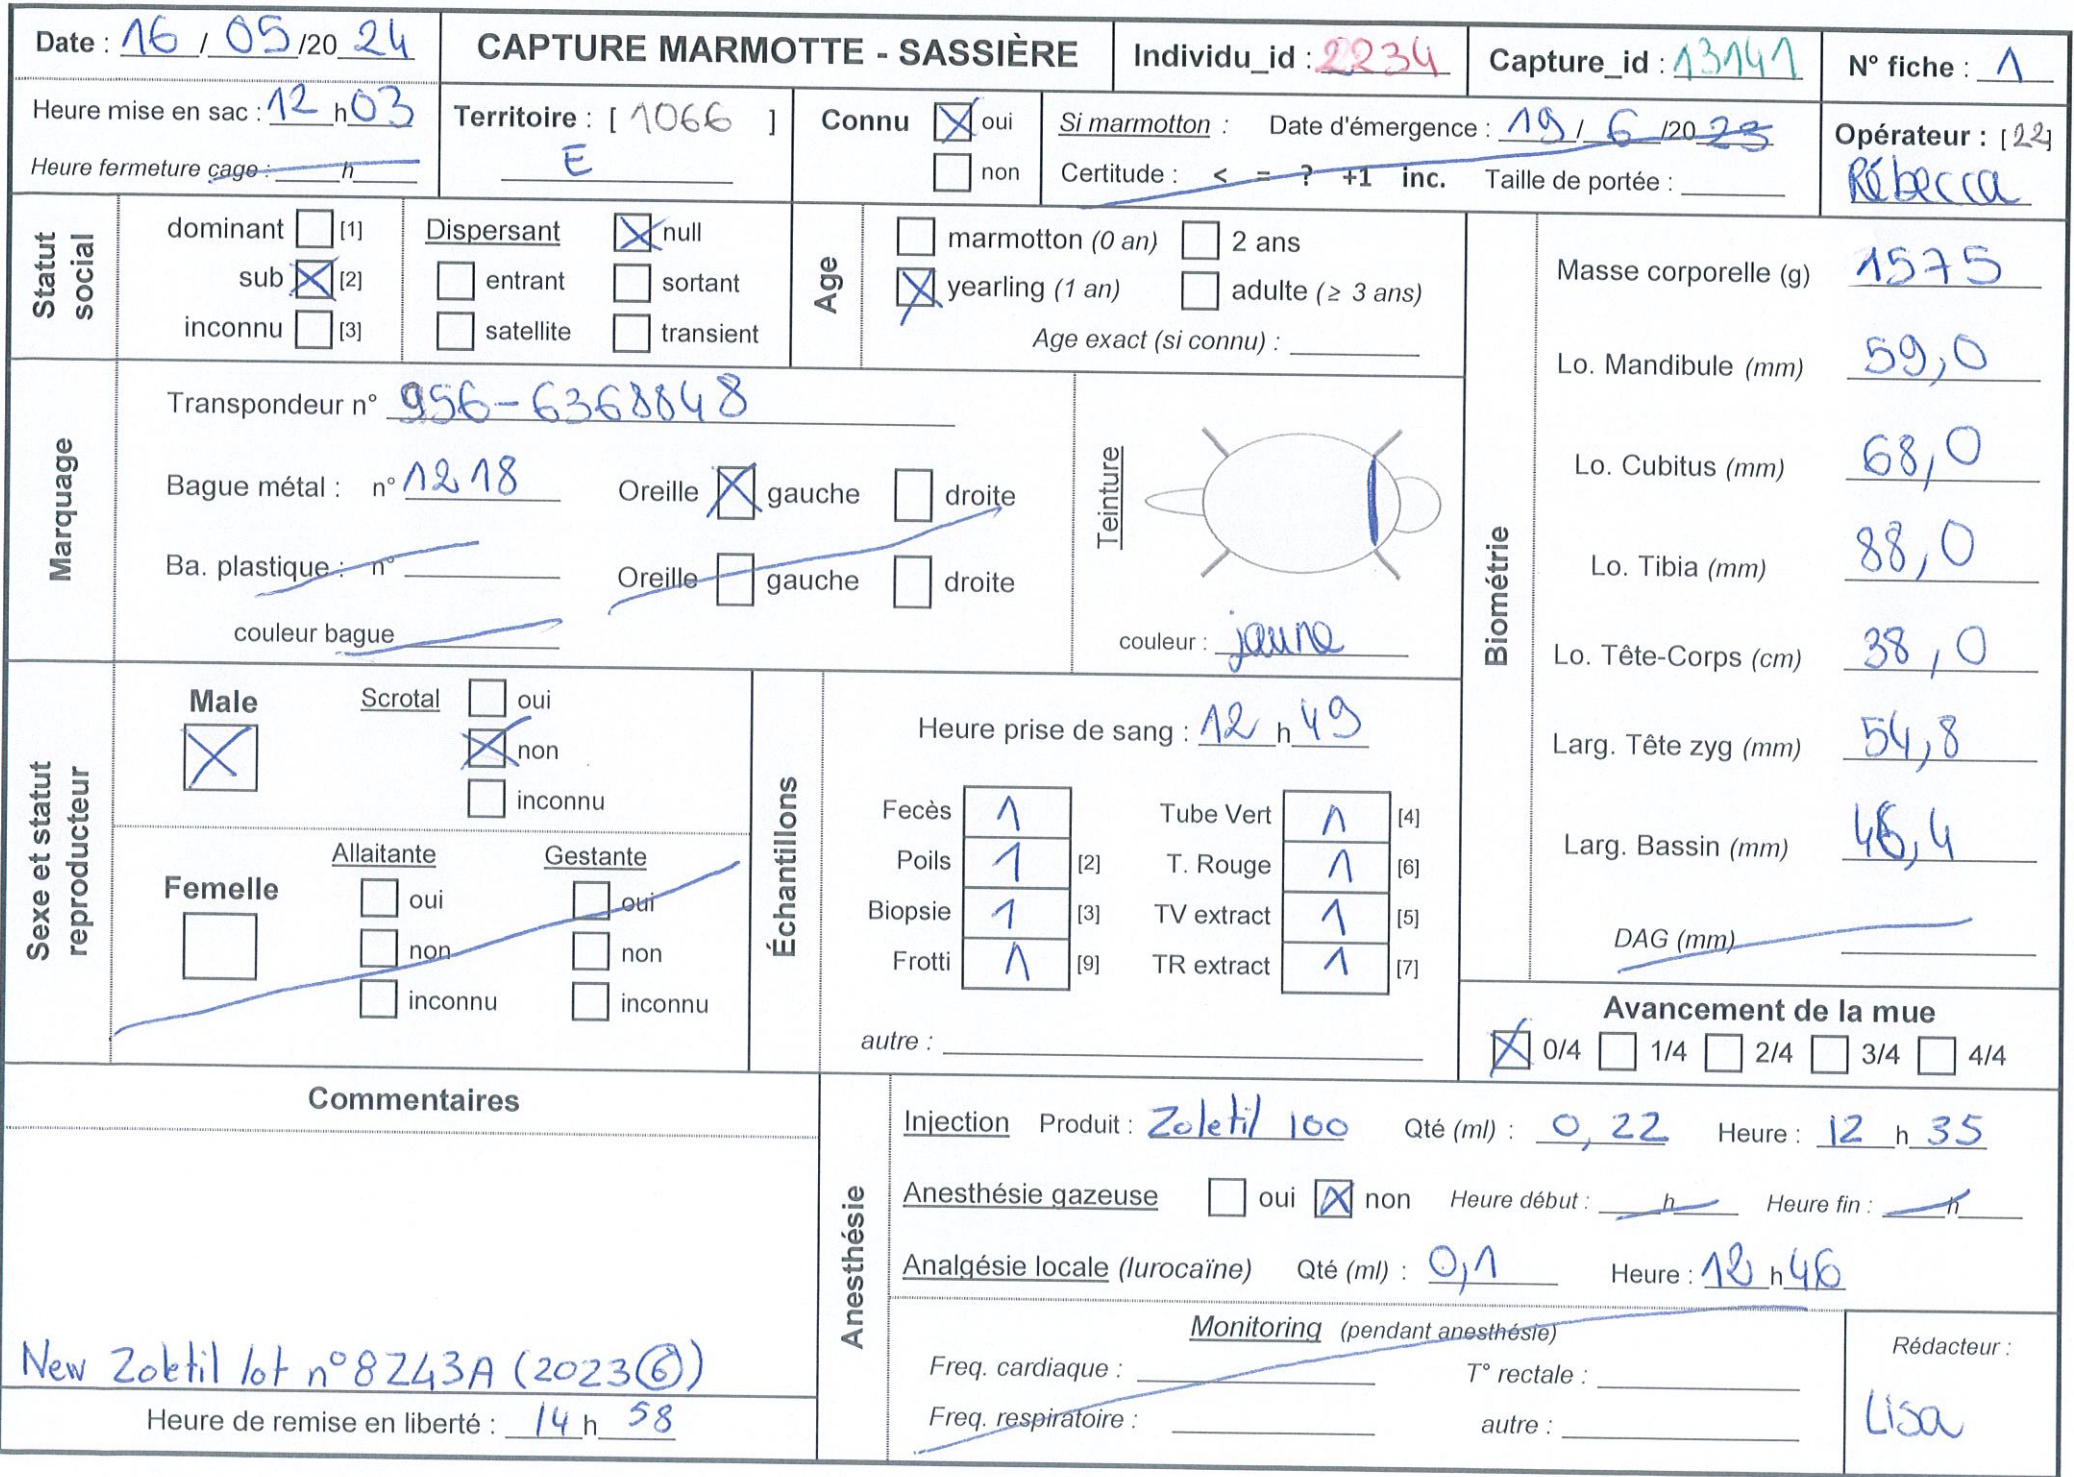 Date : 16 / 05 /20 24
CAPTURE MARMOTTE - SASSIÈRE
Individu_id : 2234
Capture_id : 13141
N° fiche : 1
Heure mise en sac : 12 h 03
Heure fermeture cage : h
Territoire : [ 1066 ]
E
Connu oui
non
Si marmotton : Date d'émergence : 19 / 6 /20 23
Certitude : < = ? +1 inc. Taille de portée :
Opérateur : [22]
Rébecca
Statut social
dominant [1]
sub [2]
inconnu [3]
Dispersant null
entrant sortant
satellite transient
Age
marmotton (0 an) 2 ans
yearling (1 an) adulte (≥ 3 ans)
Age exact (si connu) :
Marquage
Transpondeur n° 956-6368848
Bague métal : n° 1218 Oreille gauche droite
Ba. plastique : n° Oreille gauche droite
couleur bague
Teinture
couleur : jaune
Biométrie
Masse corporelle (g) 1575
Lo. Mandibule (mm) 59,0
Lo. Cubitus (mm) 68,0
Lo. Tibia (mm) 88,0
Lo. Tête-Corps (cm) 38,0
Larg. Tête zyg (mm) 54,8
Larg. Bassin (mm) 46,4
DAG (mm)
Sexe et statut reproducteur
Male
Scrotal oui
non
inconnu
Femelle
Allaitante Gestante
oui oui
non non
inconnu inconnu
Échantillons
Heure prise de sang : 12 h 49
Fecès 1 Tube Vert 1 [4]
Poils 1 [2] T. Rouge 1 [6]
Biopsie 1 [3] TV extract 1 [5]
Frotti 1 [9] TR extract 1 [7]
autre :
Avancement de la mue
0/4 1/4 2/4 3/4 4/4
Commentaires
New Zoletil lot n°8Z43A (2023⑥)
Heure de remise en liberté : 14 h 58
Anesthésie
Injection Produit : Zoletil 100 Qté (ml) : 0,22 Heure : 12 h 35
Anesthésie gazeuse oui non Heure début : h Heure fin : h
Analgésie locale (lurocaïne) Qté (ml) : 0,1 Heure : 12 h 46
Monitoring (pendant anesthésie)
Freq. cardiaque : T° rectale :
Freq. respiratoire : autre :
Rédacteur :
Lisa